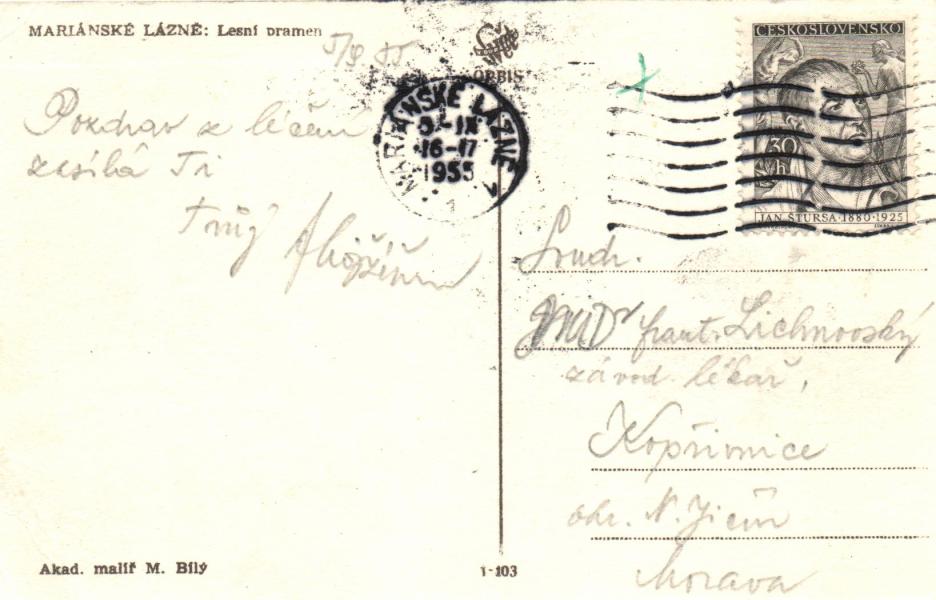 MARIÁNSKÉ LÁZNĚ: Lesní pramen
5/9 55
ORBIS
Pozdrav z léčení
zasílá Ti
Tvůj
MARIÁNSKÉ LÁZNĚ
5.-IX
16-17
1955
1
ČESKOSLOVENSKO
30
h
JAN ŠTURSA·1880·1925
Soudr.
MUDr Frant. Lichnovský
závod. lékař,
Kopřivnice
okr. N. Jičín
Morava
Akad. malíř M. Bílý
1-103